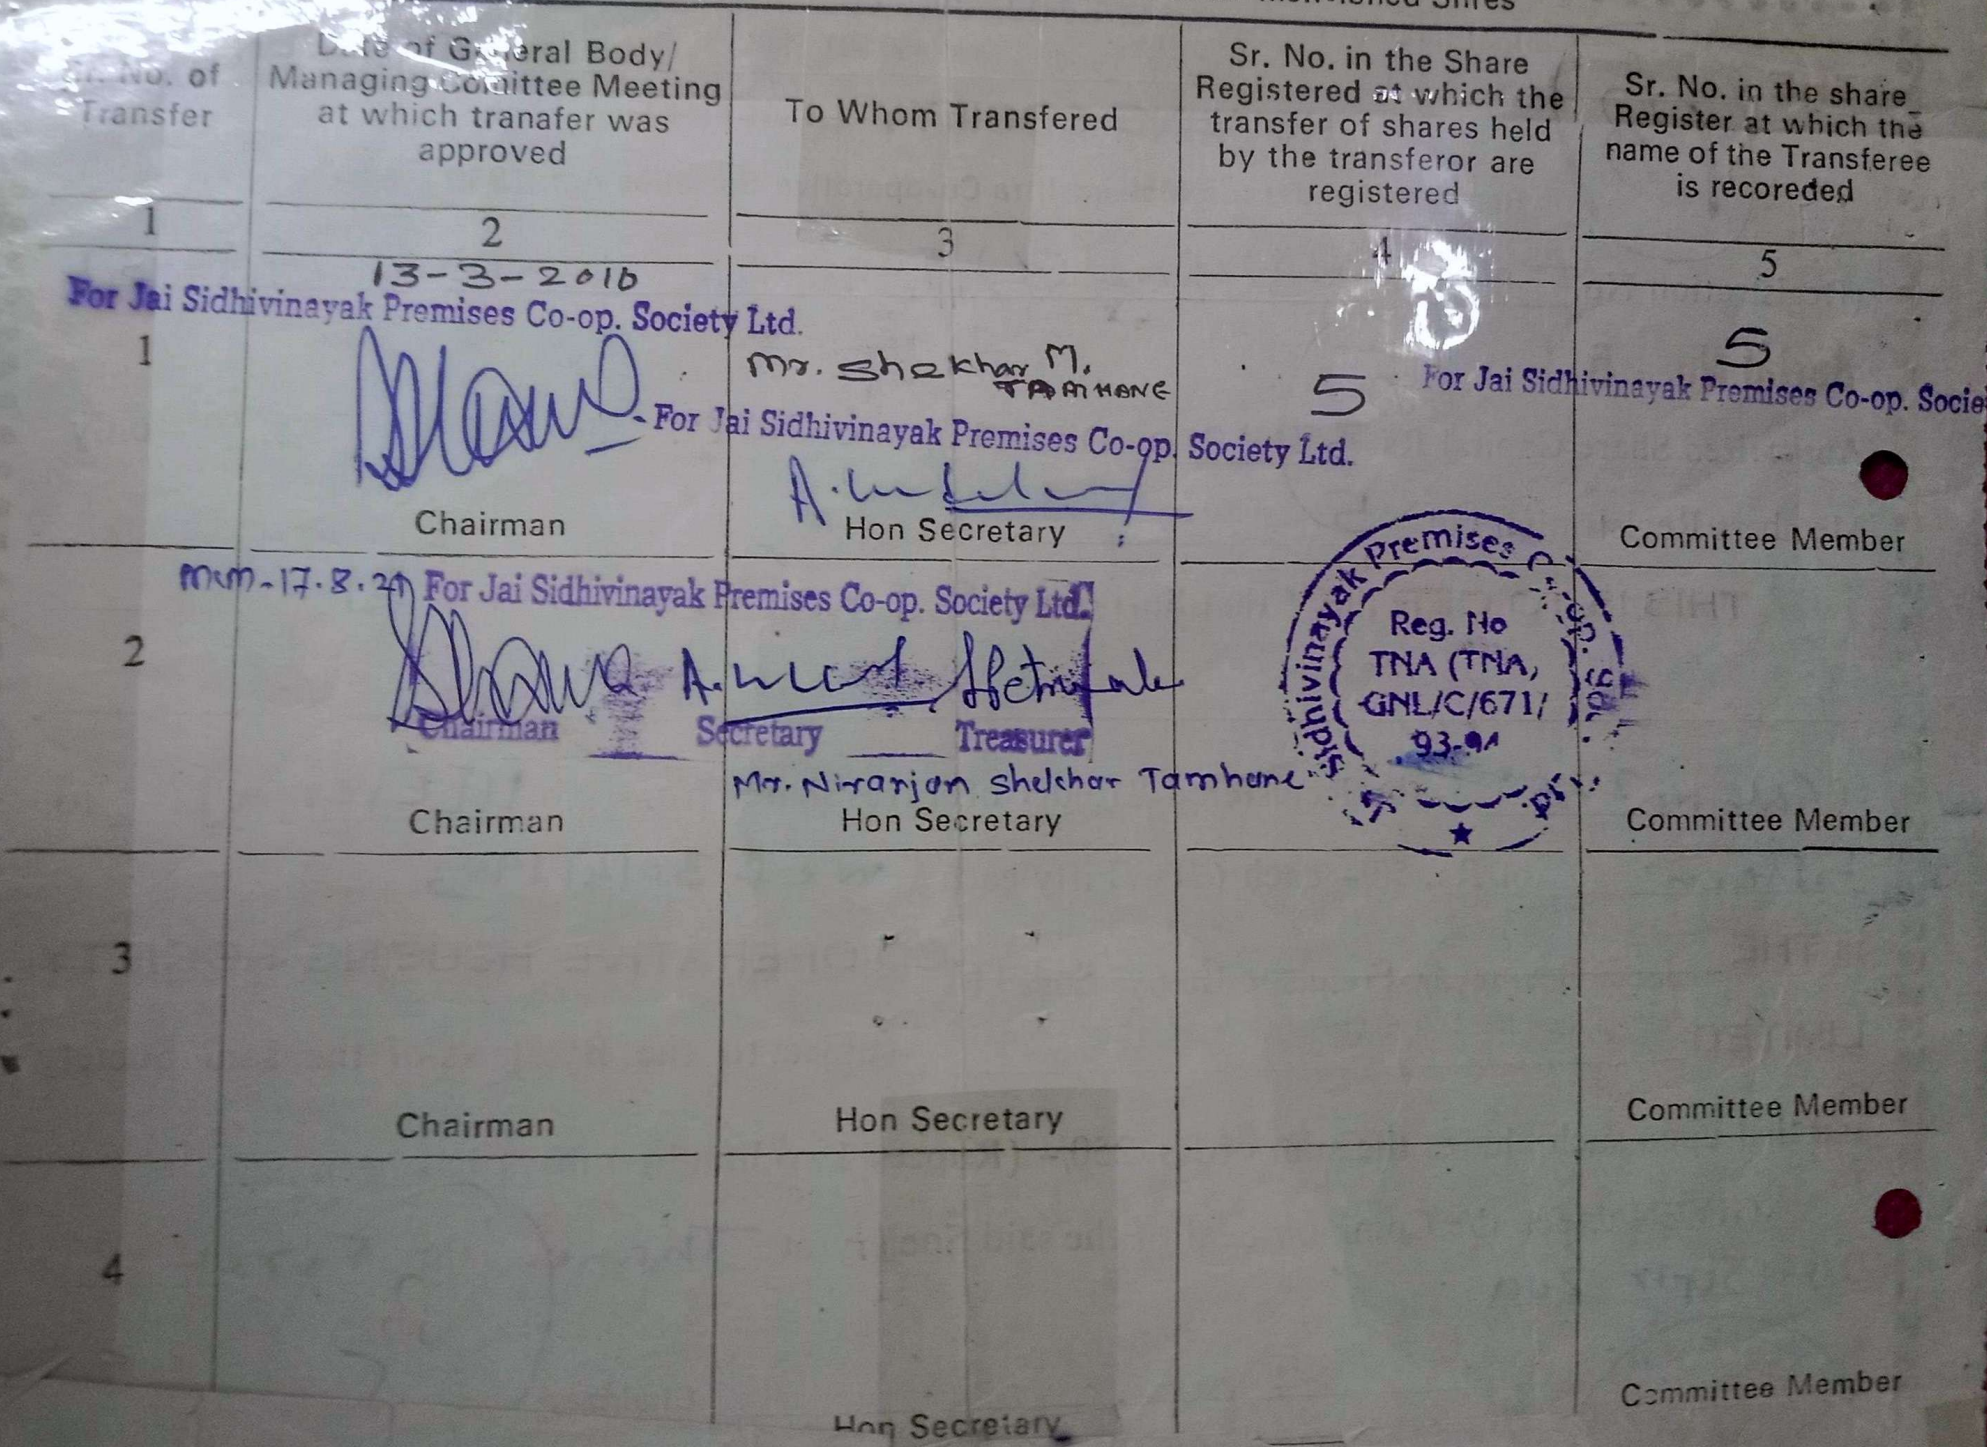 Sr. No. of
Transfer
Date of General Body/
Managing Comittee Meeting
at which tranafer was
approved
To Whom Transfered
Sr. No. in the Share
Registered at which the
transfer of shares held
by the transferor are
registered
Sr. No. in the share
Register at which the
name of the Transferee
is recoreded
1
2
3
4
5
13-3-2010
For Jai Sidhivinayak Premises Co-op. Society Ltd.
1
Mr. Shekhar M.
TAMHANE
5
5
For Jai Sidhivinayak Premises Co-op. Socie
For Jai Sidhivinayak Premises Co-op. Society Ltd.
Chairman
Hon Secretary
Committee Member
2
mcm-17.8.21
For Jai Sidhivinayak Premises Co-op. Society Ltd.
Chairman
Secretary
Treasurer
Mr. Niranjan Shekhar Tamhane
Chairman
Hon Secretary
Committee Member
Sidhivinayak Premises
Reg. No
TNA (TNA,
GNL/C/671/
3
Chairman
Hon Secretary
Committee Member
4
Hon Secretary
Committee Member